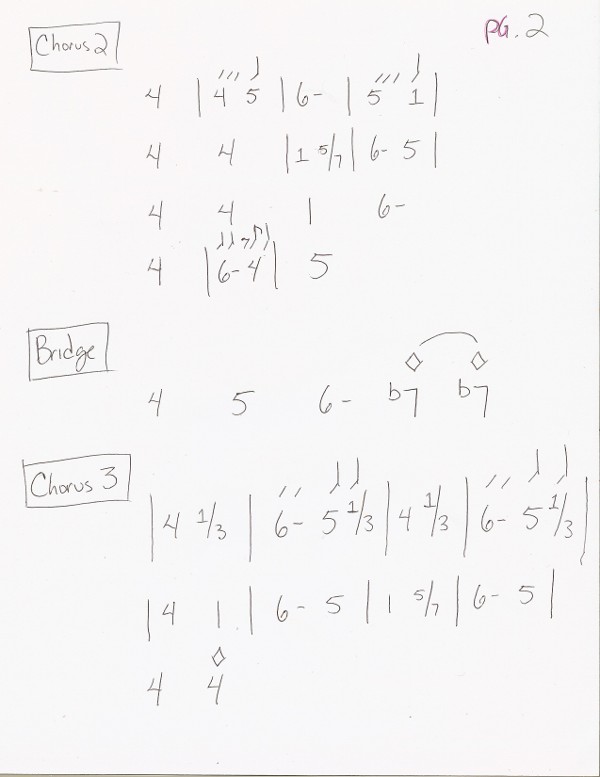 PG. 2
Chorus 2
4 | 4 5 | 6- | 5 1 |
4 4 | 1 5/7 | 6- 5 |
4 4 1 6-
4 | 6- 4 | 5
Bridge
4 5 6- b7 b7
Chorus 3
| 4 1/3 | 6- 5 1/3 | 4 1/3 | 6- 5 1/3 |
| 4 1 | 6- 5 | 1 5/7 | 6- 5 |
4 4